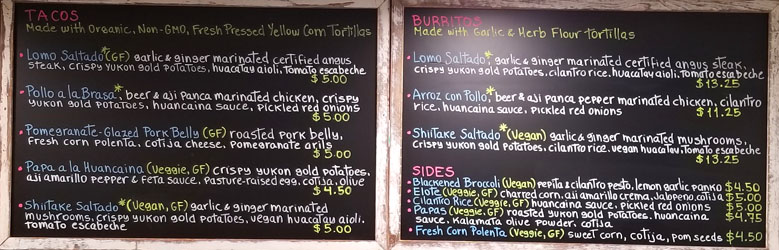 TACOS
Made with Organic, Non-GMO, Fresh Pressed Yellow Corn Tortillas
• Lomo Saltado* (GF) garlic & ginger marinated certified angus
steak, crispy yukon gold potatoes, huacatay aioli, tomato escabeche
$5.00
• Pollo a la Brasa*, beer & aji panca marinated chicken, crispy
yukon gold potatoes, huancaina sauce, pickled red onions
$5.00
• Pomegranate-Glazed Pork Belly (GF) roasted pork belly,
fresh corn polenta, cotija cheese, pomegranate arils
$5.00
• Papa a la Huancaina (Veggie, GF) crispy yukon gold potatoes,
aji amarillo pepper & feta sauce, pasture-raised egg, cotija, olive
$4.50
• Shiitake Saltado* (Vegan, GF) garlic & ginger marinated
mushrooms, crispy yukon gold potatoes, vegan huacatay aioli,
tomato escabeche
$5.00
BURRITOS
Made with Garlic & Herb Flour Tortillas
• Lomo Saltado*, garlic & ginger marinated certified angus steak,
crispy yukon gold potatoes, cilantro rice, huacatay aioli, tomato escabeche
$13.25
• Arroz con Pollo*, beer & aji panca pepper marinated chicken, cilantro
rice, huancaina sauce, pickled red onions
$11.25
• Shiitake Saltado* (Vegan) garlic & ginger marinated mushrooms,
crispy yukon gold potatoes, cilantro rice, vegan huacatay aioli, tomato escabeche
$13.25
SIDES
• Blackened Broccoli (Vegan) pepita & cilantro pesto, lemon garlic panko $4.50
• Elote (Veggie, GF) charred corn, aji amarillo crema, jalapeno, cotija $5.00
• Cilantro Rice (Veggie, GF) huancaina sauce, pickled red onions $5.00
• Papas (Veggie, GF) roasted yukon gold potatoes, huancaina
sauce, kalamata olive powder, cotija $4.75
• Fresh Corn Polenta (Veggie, GF) sweet corn, cotija, pom seeds $4.50